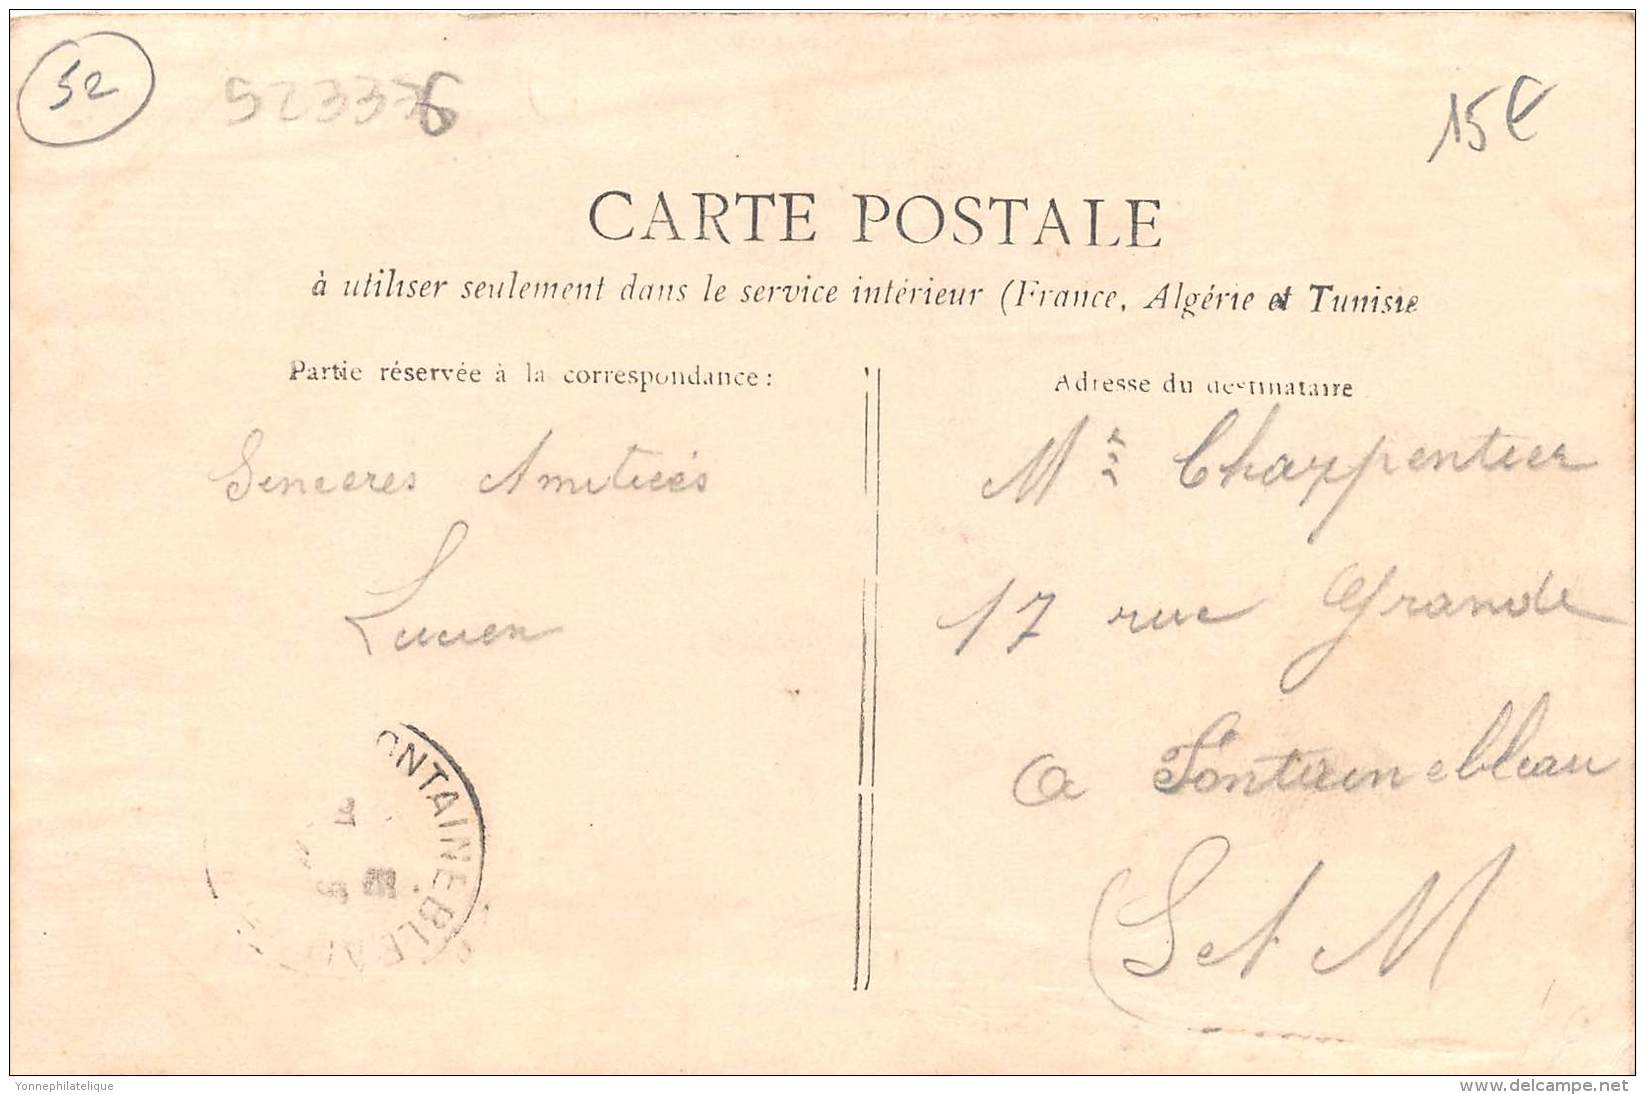 52
523336
15€
CARTE POSTALE
à utiliser seulement dans le service intérieur (France, Algérie et Tunisie
Partie réservée à la correspondance :
Adresse du destinataire
Sinceres Amitiés
Lucien
Charpentier
17 rue Grande
a Fontainebleau
(S et M
ONTAINEBLEAU
Yonnephilatelique
delcampe.net